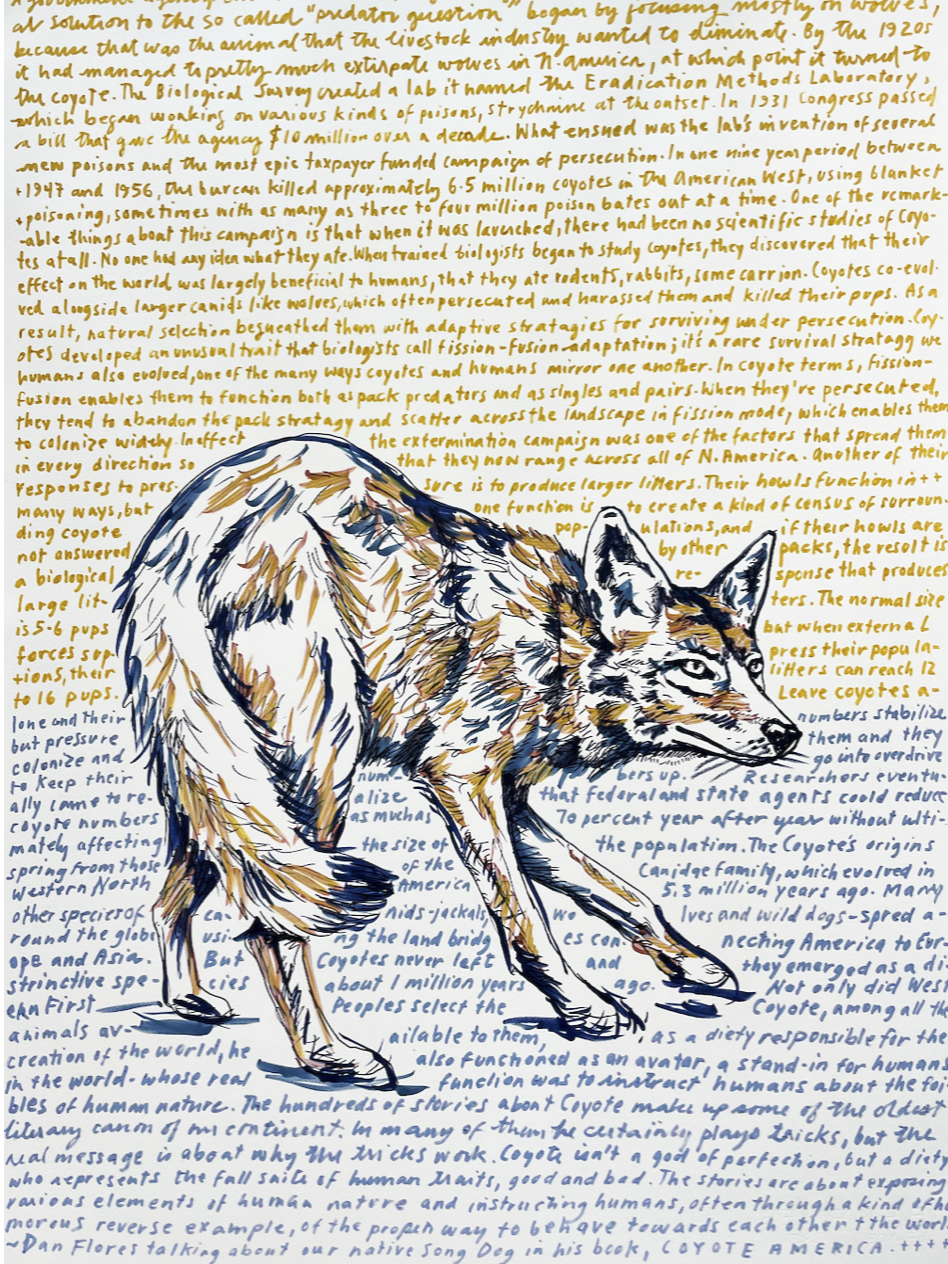 al solution to the so called "predator question" began by focusing mostly on wolves,
because that was the animal that the livestock industry wanted to eliminate. By the 1920s
it had managed to pretty much extirpate wolves in N. america, at which point it turned to
the coyote. The Biological Survey created a lab it named the Eradication Methods Laboratory,
which began working on various kinds of poisons, strychnine at the outset. In 1931 Congress passed
a bill that gave the agency $10 million over a decade. What ensued was the lab's invention of several
new poisons and the most epic taxpayer funded campaign of persecution. In one nine year period between
+1947 and 1956, the bureau killed approximately 6.5 million coyotes in the American West, using blanket
+poisoning, sometimes with as many as three to four million poison bates out at a time. One of the remark
-able things about this campaign is that when it was launched, there had been no scientific studies of Coyo-
tes at all. No one had any idea what they ate. When trained biologists began to study coyotes, they discovered that their
effect on the world was largely beneficial to humans, that they ate rodents, rabbits, some carrion. Coyotes co-evol-
ved alongside larger canids like wolves, which often persecuted and harassed them and killed their pups. As a
result, natural selection bequeathed them with adaptive stratagies for surviving under persecution. Coy-
otes developed an unusual trait that biologists call fission-fusion-adaptation; it's a rare survival stratagy we
humans also evolved, one of the many ways coyotes and humans mirror one another. In coyote terms, fission-
fusion enables them to function both as pack predators and as singles and pairs. When they're persecuted,
they tend to abandon the pack stratagy and scatter across the landscape in fission mode, which enables them
to colonize widely. In effect the extermination campaign was one of the factors that spread them
in every direction so that they now range across all of N. America. Another of their
responses to pres- sure is to produce larger litters. Their howls function in ++
many ways, but one function is to create a kind of census of surroun
ding coyote pop- ulations, and if their howls are
not answered by other packs, the result is
a biological re- sponse that produces
large lit- ters. The normal size
is 5-6 pups but when external
forces sup- press their popula-
tions, their litters can reach 12
to 16 pups. Leave coyotes a-
lone and their numbers stabilize
but pressure them and they
colonize and go into overdrive
to keep their num- bers up. Researchers eventu-
ally came to re- alize that federal and state agents could reduce
coyote numbers as much as 70 percent year after year without ulti-
mately affecting the size of the population. The Coyote's origins
spring from those of the Canidae family, which evolved in
Western North America 5.3 million years ago. Many
other species of ca- nids-jackals, wo lves and wild dogs-spred a-
round the globe usi- ng the land bridg es con- necting America to Eur-
ope and Asia. But Coyotes never left and they emerged as a di-
strinctive spe- cies about 1 million years ago. Not only did West
ern First Peoples select the Coyote, among all the
animals av- ailable to them, as a diety responsible for the
creation of the world, he also functioned as an avatar, a stand-in for humans
in the world- whose real function was to instruct humans about the foi
bles of human nature. The hundreds of stories about Coyote make up some of the oldest
literary canon of our continent. In many of them he certainly plays tricks, but the
real message is about why the tricks work. Coyote isn't a god of perfection, but a diety
who represents the full suite of human traits, good and bad. The stories are about exposing
various elements of human nature and instructing humans, often through a kind of h
morous reverse example, of the proper way to behave towards each other + the world
~Dan Flores talking about our native Song Dog in his book, COYOTE AMERICA.++++